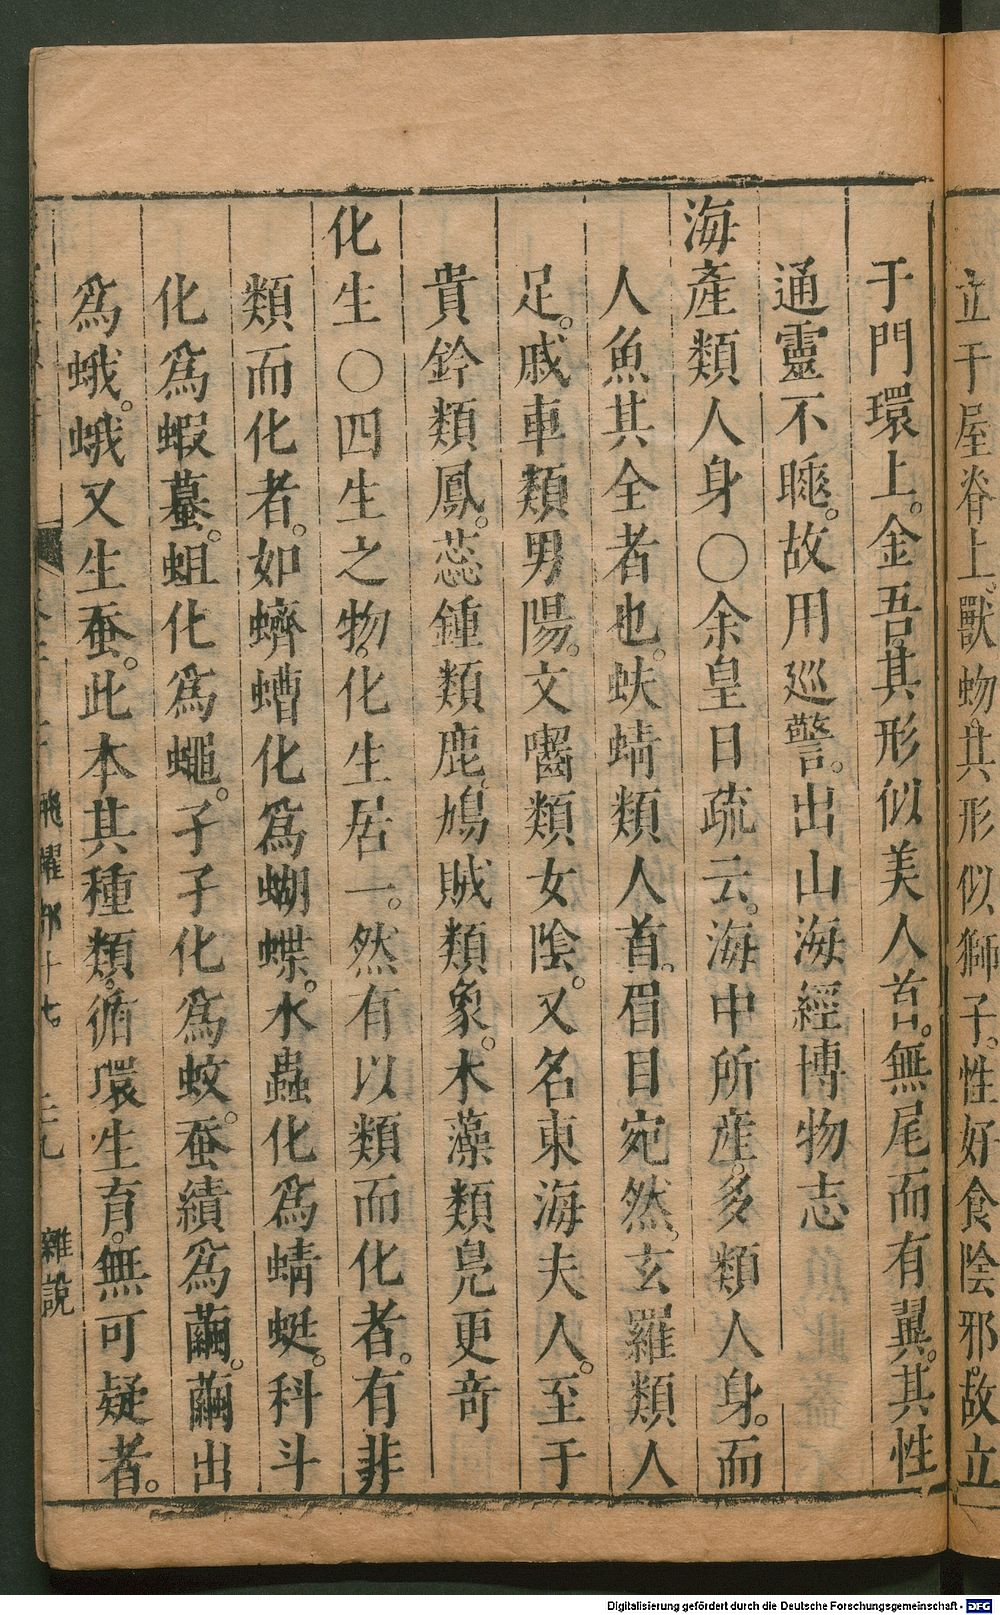 立于屋脊上。獸蚴其形似獅子。性好食陰邪。故立
于門環上。金吾其形似美人首。無尾而有翼。其性
通靈不睡。故用巡警。出山海經博物志
海產類人身〇余皇日疏云。海中所產。多類人身。而
人魚其全者也。蚨蜻類人首。眉目宛然。玄羅類人
足。戚車類男陽。文嚙類女陰。又名東海夫人。至于
貴鈐類鳳。蕊鍾類鹿。鳩賊類象。木藻類鳧更奇
化生〇四生之物。化生居一。然有以類而化者。有非
類而化者。如蠐螬化為蝴蝶。水蟲化為蜻蜓。科斗
化為蝦蟇。蛆化為蠅。孑孑化為蚊。蚕績為繭。繭出
為蛾。蛾又生蚕。此本其種類。循環生育。無可疑者。
雜說
Digitalisierung gefördert durch die Deutsche Forschungsgemeinschaft - DFG